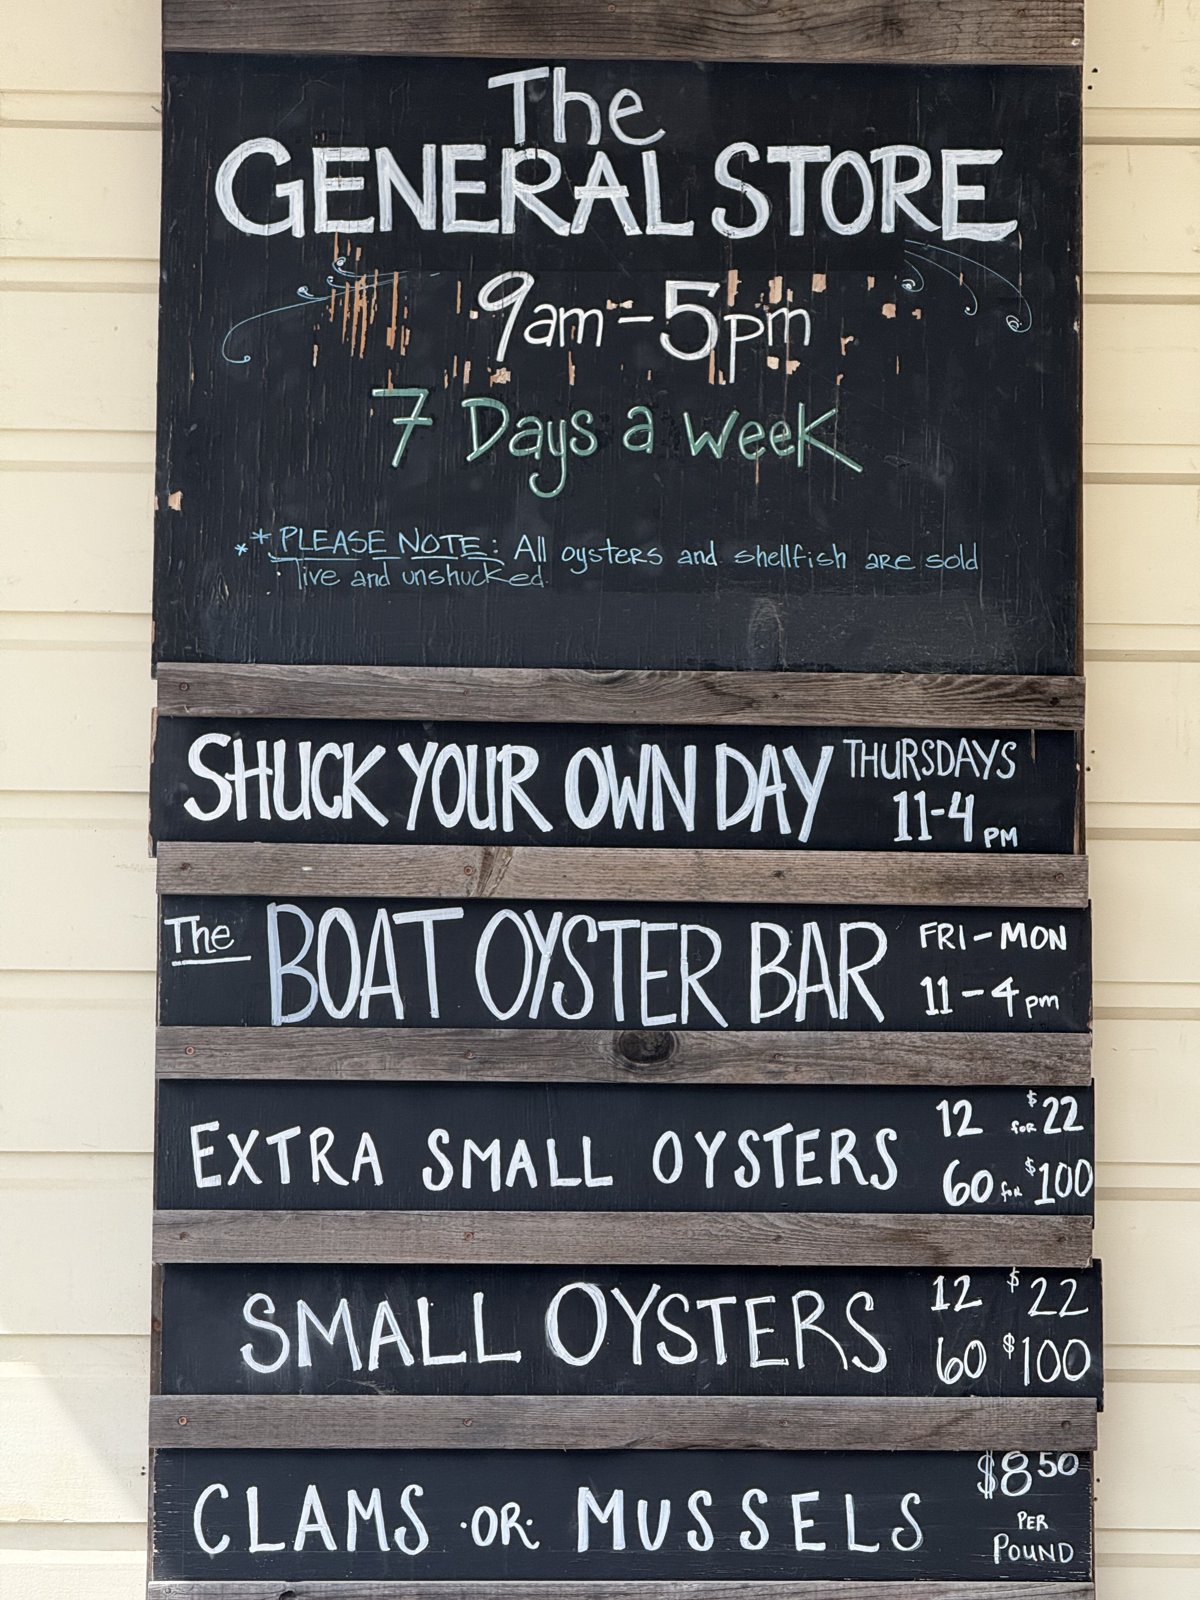 The
GENERAL STORE
9am-5pm
7 Days a week
** PLEASE NOTE: All oysters and shellfish are sold
live and unshucked.
SHUCK YOUR OWN DAY THURSDAYS
11-4 PM
The BOAT OYSTER BAR FRI-MON
11-4 pm
EXTRA SMALL OYSTERS 12 for $22
60 for $100
SMALL OYSTERS 12 $22
60 $100
CLAMS ·OR· MUSSELS $8 50
PER
POUND